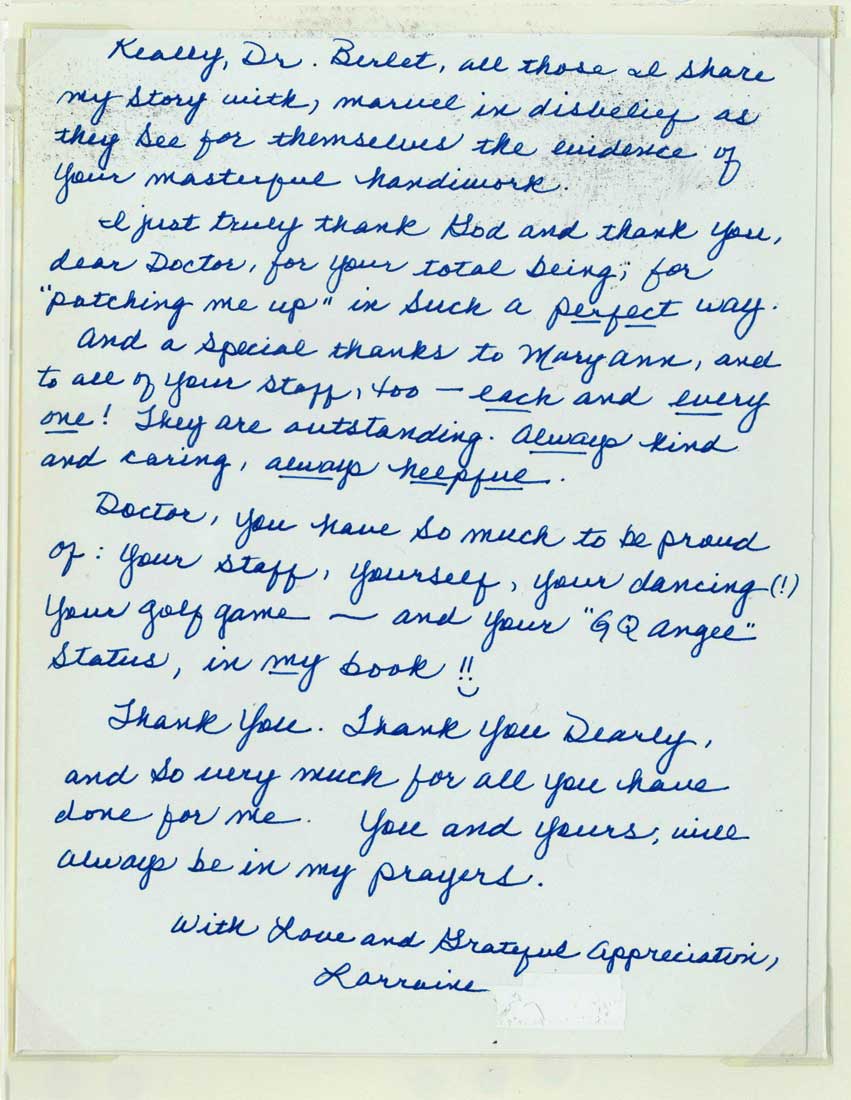 Really, Dr. Berlet, all those I share
my story with, marvel in disbelief as
they see for themselves the evidence of
your masterful handiwork.
I just truly thank God and thank you,
dear Doctor, for your total being; for
"patching me up" in such a perfect way.
And a special thanks to Mary Ann, and
to all of your staff, too — each and every
one! They are outstanding. Always kind
and caring, always helpful.
Doctor, you have so much to be proud
of: Your staff, yourself, your dancing (!)
Your golf game — and your "GQ angel"
status, in my book !!
Thank You. Thank you Dearly,
and so very much for all you have
done for me. You and yours, will
always be in my prayers.
With Love and Grateful Appreciation,
Lorraine